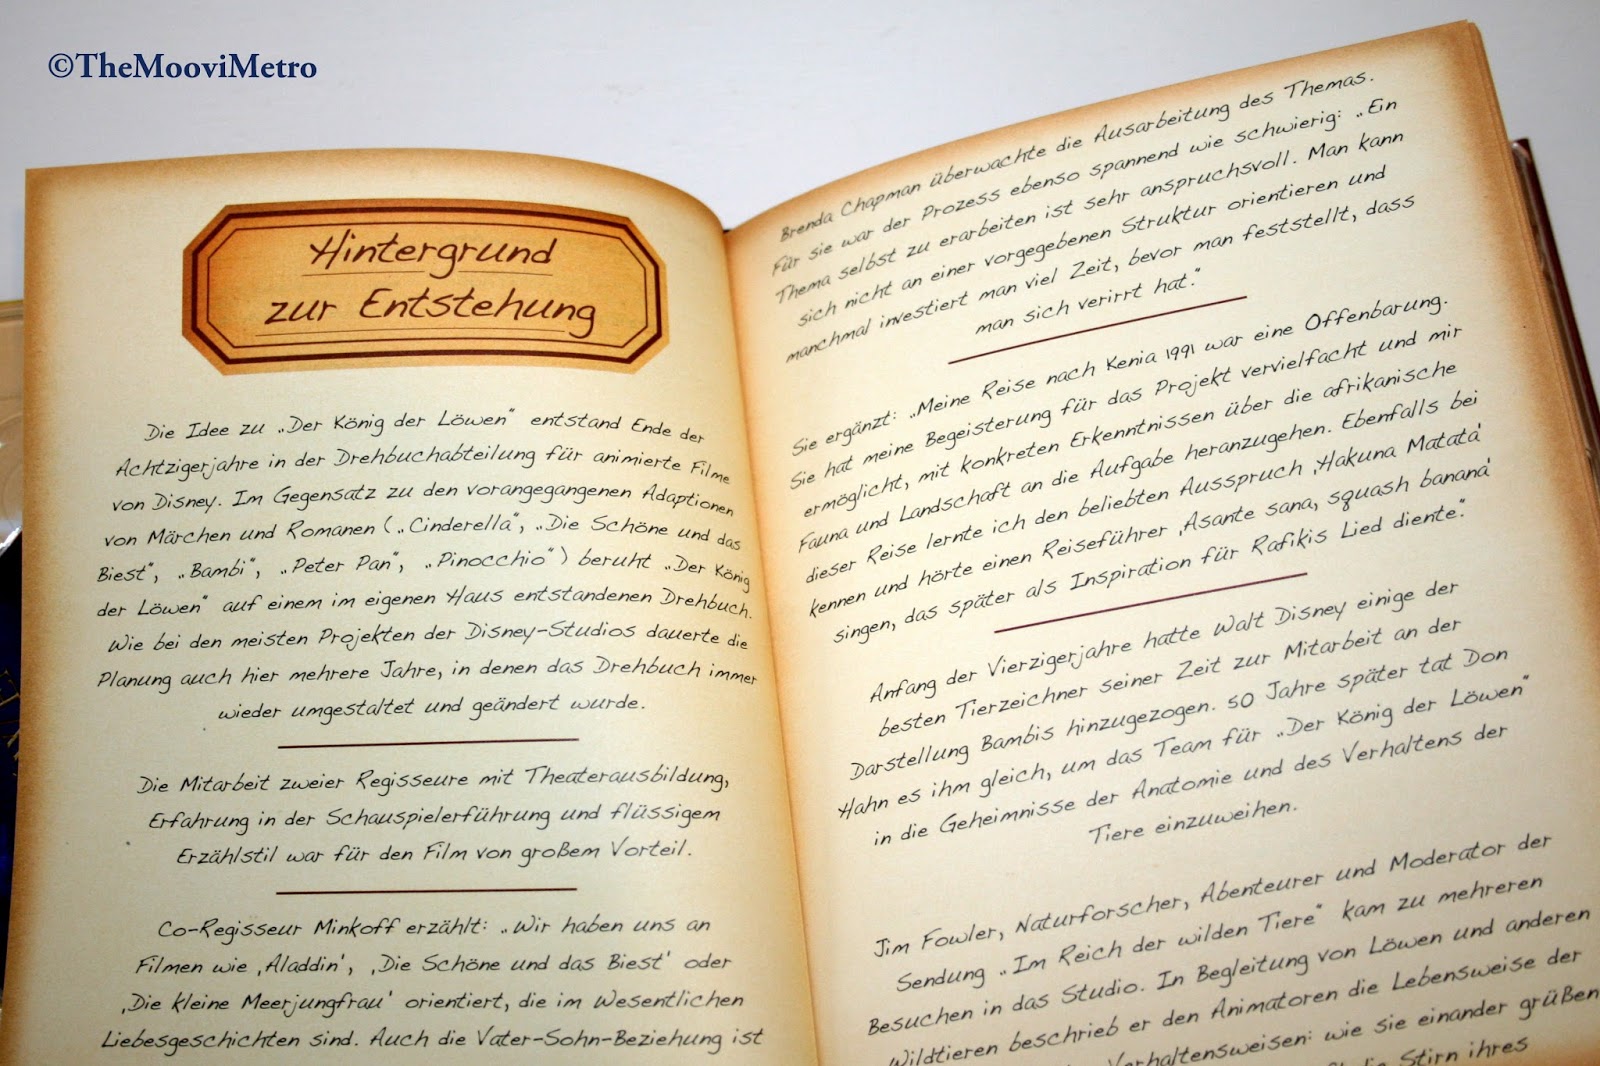 ©TheMooviMetro
Hintergrund
zur Entstehung
Die Idee zu „Der König der Löwen“ entstand Ende der
Achtzigerjahre in der Drehbuchabteilung für animierte Filme
von Disney. Im Gegensatz zu den vorangegangenen Adaptionen
von Märchen und Romanen („Cinderella“, „Die Schöne und das
Biest“, „Bambi“, „Peter Pan“, „Pinocchio“) beruht „Der König
der Löwen“ auf einem im eigenen Haus entstandenen Drehbuch.
Wie bei den meisten Projekten der Disney-Studios dauerte die
Planung auch hier mehrere Jahre, in denen das Drehbuch immer
wieder umgestaltet und geändert wurde.
Die Mitarbeit zweier Regisseure mit Theaterausbildung,
Erfahrung in der Schauspielerführung und flüssigem
Erzählstil war für den Film von großem Vorteil.
Co-Regisseur Minkoff erzählt: „Wir haben uns an
Filmen wie ‚Aladdin‘, ‚Die Schöne und das Biest‘ oder
‚Die kleine Meerjungfrau‘ orientiert, die im Wesentlichen
Liebesgeschichten sind. Auch die Vater-Sohn-Beziehung ist
Brenda Chapman überwachte die Ausarbeitung des Themas.
Für sie war der Prozess ebenso spannend wie schwierig: „Ein
Thema selbst zu erarbeiten ist sehr anspruchsvoll. Man kann
sich nicht an einer vorgegebenen Struktur orientieren und
manchmal investiert man viel Zeit, bevor man feststellt, dass
man sich verirrt hat.“
Sie ergänzt: „Meine Reise nach Kenia 1991 war eine Offenbarung.
Sie hat meine Begeisterung für das Projekt vervielfacht und mir
ermöglicht, mit konkreten Erkenntnissen über die afrikanische
Fauna und Landschaft an die Aufgabe heranzugehen. Ebenfalls bei
dieser Reise lernte ich den beliebten Ausspruch ‚Hakuna Matata‘
kennen und hörte einen Reiseführer ‚Asante sana, squash banana‘
singen, das später als Inspiration für Rafikis Lied diente.“
Anfang der Vierzigerjahre hatte Walt Disney einige der
besten Tierzeichner seiner Zeit zur Mitarbeit an der
Darstellung Bambis hinzugezogen. 50 Jahre später tat Don
Hahn es ihm gleich, um das Team für „Der König der Löwen“
in die Geheimnisse der Anatomie und des Verhaltens der
Tiere einzuweihen.
Jim Fowler, Naturforscher, Abenteurer und Moderator der
Sendung „Im Reich der wilden Tiere“ kam zu mehreren
Besuchen in das Studio. In Begleitung von Löwen und anderen
Wildtieren beschrieb er den Animatoren die Lebensweise der
Verhaltensweisen: wie sie einander grüßen
Stirn ihres